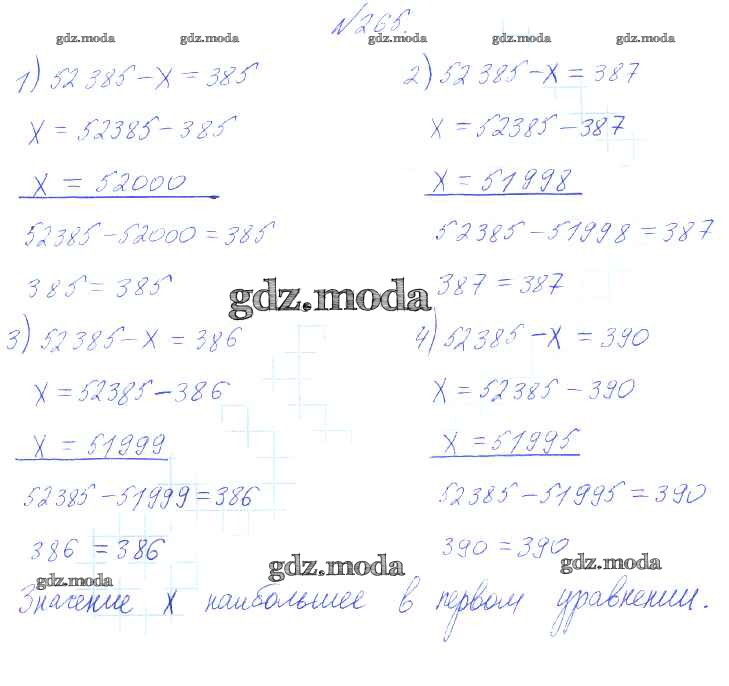 №265.
gdz.moda gdz.moda gdz.moda gdz.moda
1) 52 385 - x = 385
x = 52385 - 385
x = 52000
52385 - 52000 = 385
385 = 385
2) 52 385 - x = 387
x = 52385 - 387
x = 51998
52385 - 51998 = 387
387 = 387
gdz.moda
3) 52 385 - x = 386
x = 52385 - 386
x = 51999
52385 - 51999 = 386
386 = 386
4) 52385 - x = 390
x = 52385 - 390
x = 51995
52385 - 51995 = 390
390 = 390
gdz.moda gdz.moda gdz.moda
Значение x наибольшее в первом уравнении.